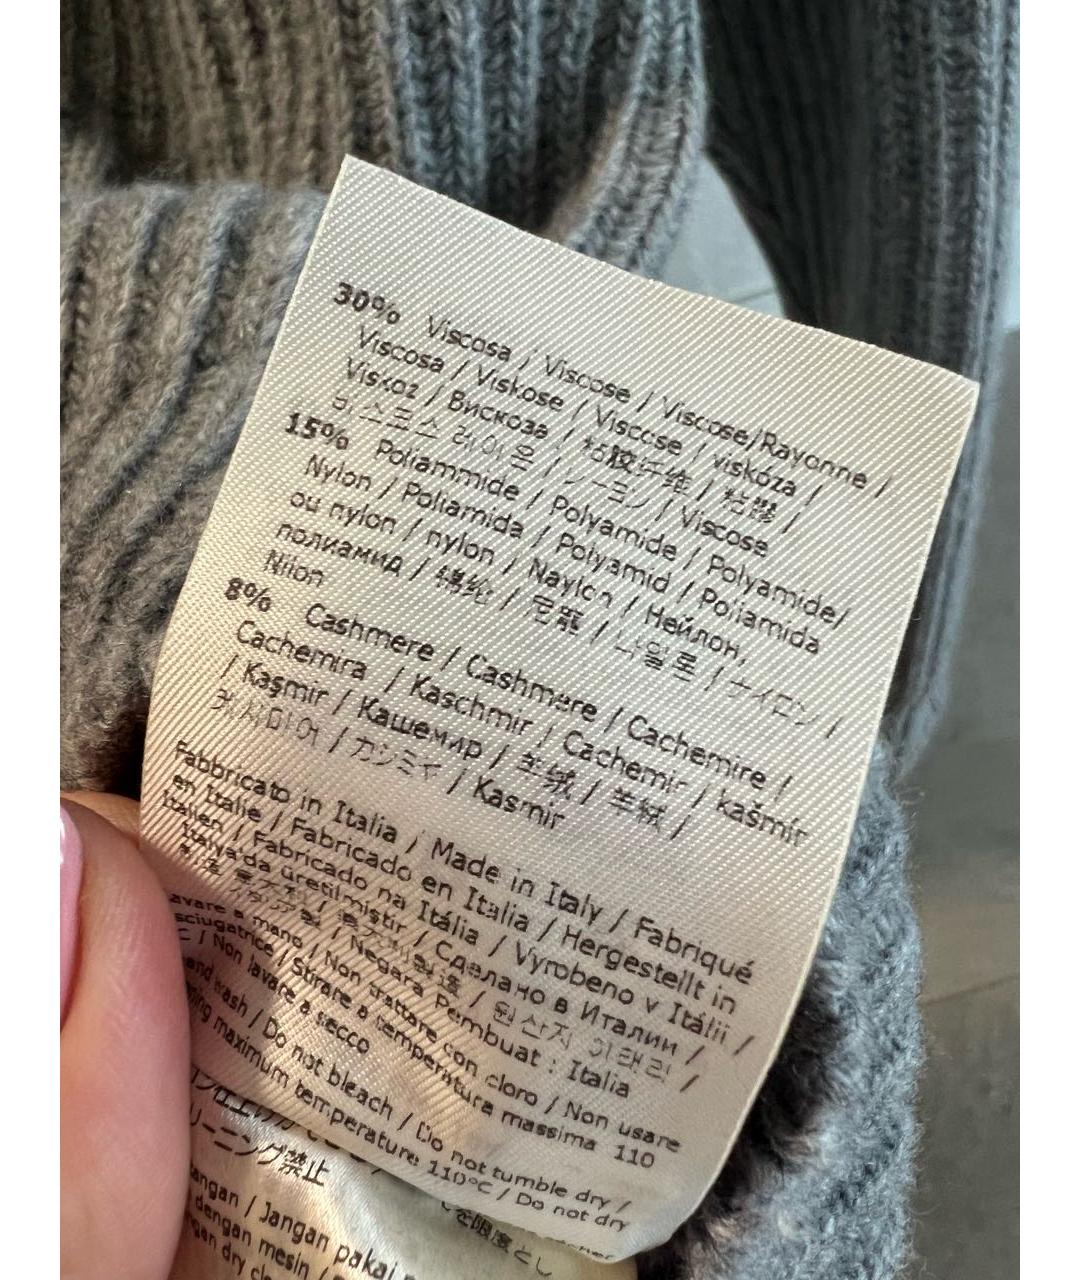 30% Viscosa / Viscose / Viscose/Rayonne /
Viscosa / Viskose / Viscose / viskóza /
Viskoz / Вискоза / 粘胶纤维 / 粘膠 /
비스코스 레이온 / レーヨン / Viscose
15% Poliammide / Polyamide / Polyamide/
Nylon / Poliamida / Polyamid / Poliamida
ou nylon / nylon / Naylon / Нейлон,
полиамид / 锦纶 / 尼龍 / 나일론 / ナイロン /
Nilon
8% Cashmere / Cashmere / Cachemire /
Cachemira / Kaschmir / Cachemir / kašmír
/ Kaşmir / Кашемир / 羊绒 / 羊絨 /
캐시미어 / カシミヤ / Kasmir
Fabbricato in Italia / Made in Italy / Fabriqué
en Italie / Fabricado en Italia / Hergestellt in
Italien / Fabricado na Itália / Vyrobeno v Itálii /
İtalya'da üretilmiştir / Сделано в Италии /
원산지 이태리 /
Negara Pembuat : Italia
avare a mano / Non trattare con cloro / Non usare
sciugatrice / Stirare a temperatura massima 110
C / Non lavare a secco
and wash / Do not bleach / Do not tumble dry /
ning maximum temperature 110°C / Do not dry
リーニング禁止
を限度とし
angan / Jangan pakai
dengan mesin /
gan dry